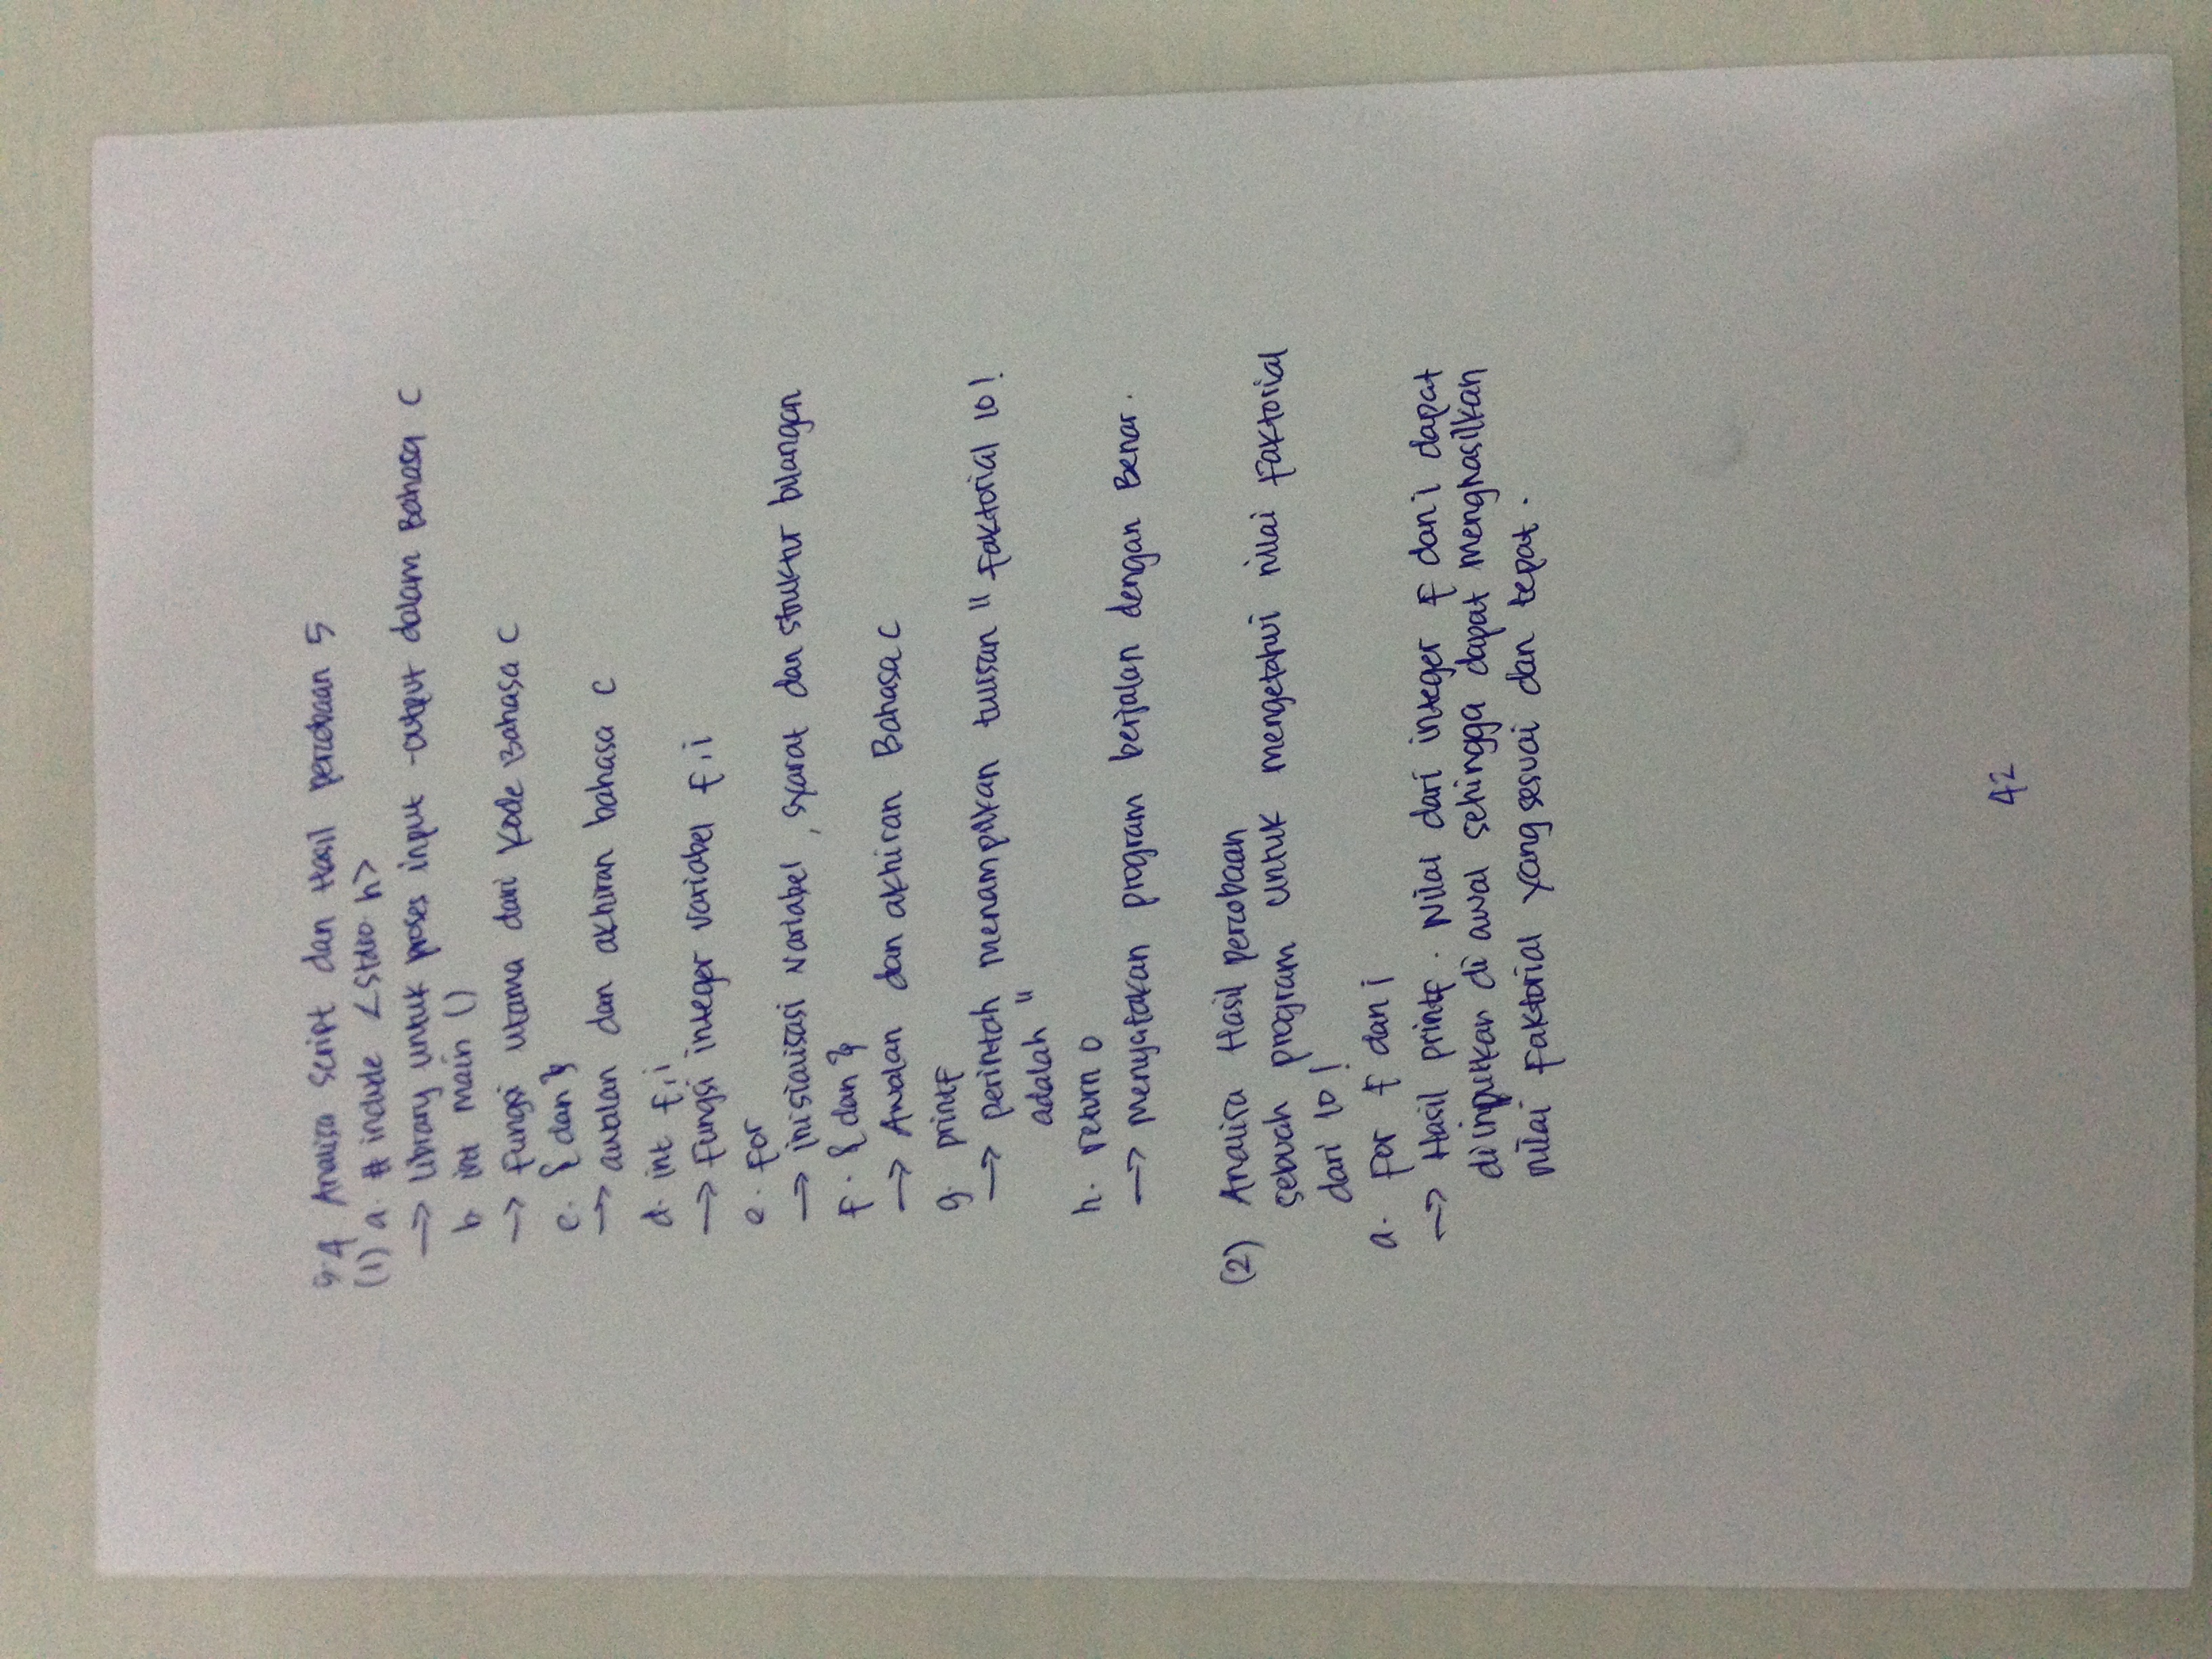 5.4 Analisa Script dan Hasil percobaan 5
(1) a. # include <Stdio h>
→ Library untuk proses input -output dalam Bahasa C
b int main ()
→ fungsi utama dari Kode Bahasa C
c. { dan }
→ awalan dan akhiran bahasa C
d. int f, i
→ Fungsi integer Variabel f, i
e. For
→ inisialisasi Variabel, syarat dan struktur bilangan
f. { dan }
→ Awalan dan akhiran Bahasa C
g. printf
→ perintah menampilkan tulisan " Faktorial 10!
adalah "
h. return 0
→ Menyatakan program berjalan dengan Benar.
(2) Analisa Hasil percobaan
sebuah program untuk mengetahui nilai Faktorial
dari 10!
a. For f dan i
→ Hasil printf. Nilai dari integer f dan i dapat
diinputkan di awal sehingga dapat menghasilkan
nilai Faktorial yang sesuai dan tepat.
42